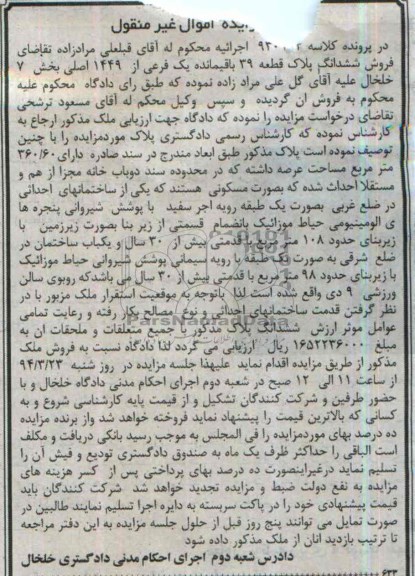 مزایده اموال غیر منقول
در پرونده کلاسه اجرائیه محکوم له آقای قبلعلی مرادزاده تقاضای
فروش ششدانگ پلاک قطعه ۳۹ باقیمانده یک فرعی از ۱۴۴۹ اصلی بخش ۷
خلخال علیه آقای گل علی مراد زاده نموده که طبق رای دادگاه محکوم علیه
محکوم به فروش ان گردیده و سپس وکیل محکم له آقای مسعود ترشخی
تقاضای درخواست مزایده را نموده که دادگاه جهت ارزیابی ملک مذکور ارجاع به
کارشناس نموده که کارشناس رسمی دادگستری پلاک موردمزایده را با چنین
توصیف نموده است پلاک مذکور طبق ابعاد مندرج در سند صادره دارای ۳۶۰/۶۰
متر مربع مساحت عرصه داشته که در محدوده سند دوباب خانه مجزا از هم و
مستقلا احداث شده که بصورت مسکونی هستند که یکی از ساختمانهای احداثی
در ضلع غربی بصورت یک طبقه رویه اجر سفید با پوشش شیروانی پنجره ها
ی الومینیومی حیاط موزائیک بانضمام قسمتی از زیر بنا بصورت زیرزمین با
زیربنای حدود ۱۰۸ متر مربع با قدمتی بیش از ۳۰ سال و یکباب ساختمان در
ضلع شرقی به صورت یک طبقه با رویه سیمانی پوشش شیروانی حیاط موزائیک
با زیربنای حدود ۹۸ متر مربع با قدمتی بیش از ۳۰ سال می باشدکه روبوی سالن
ورزشی ۹ دی واقع شده است لذا باتوجه به موقعیت استقرار ملک مزبور با در
نظر گرفتن قدمت ساختمانهای احداثی و نوع مصالح بکار رفته و رعایت تمامی
عوامل موثر ارزش ششدانگ پلاک مذکور با جمیع متعلقات و ملحقات ان به
مبلغ ۱۶۵۲۲۳۶۰۰۰ ریال ارزیابی می گردد لذا دادگاه نسبت به فروش ملک
مذکور از طریق مزایده اقدام نماید علیهذا جلسه مزایده در روز شنبه ۹۴/۳/۲۳
از ساعت ۱۱ الی ۱۲ صبح در شعبه دوم اجرای احکام مدنی دادگاه خلخال و با
حضور طرفین و شرکت کنندگان تشکیل و از قیمت پایه کارشناسی شروع و به
کسانی که بالاترین قیمت را پیشنهاد نماید فروخته خواهد شد واز برنده مزایده
ده درصد بهای موردمزایده را فی المجلس به موجب رسید بانکی دریافت و مکلف
است الباقی را حداکثر ظرف یک ماه به صندوق دادگستری تودیع و فیش آن را
تسلیم نماید درغیراینصورت ده درصد بهای پرداختی پس از کسر هزینه های
مزایده به نفع دولت ضبط و مزایده تجدید خواهد شد شرکت کنندگان باید
قیمت پیشنهادی خود را در پاکت سربسته به دایره اجرا تسلیم نمایند طالبین در
صورت تمایل می توانند پنج روز قبل از حلول جلسه مزایده به این دفتر مراجعه
تا ترتیب بازدید انان از ملک مذکور داده شود
دادرس شعبه دوم اجرای احکام مدنی دادگستری خلخال
۶۳۳